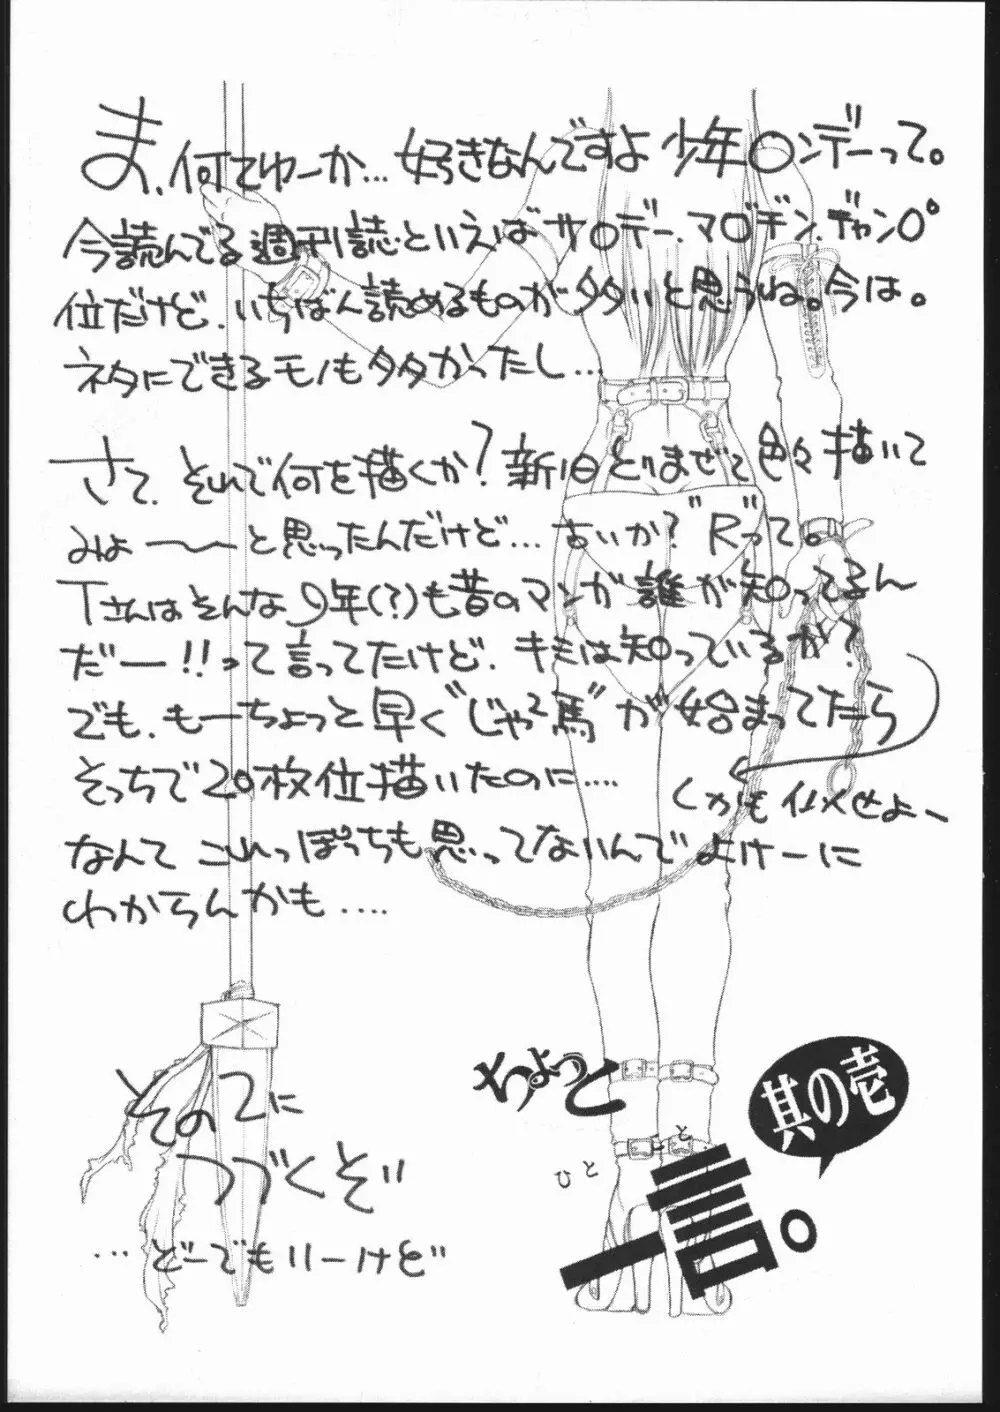 ま、何てゆーか…好きなんですよ 少年〇ンデーって。
今読んでる週刊誌といえばサ〇デー、マ〇ヂン、ヂャン〇°
位だけど、いちばん読めるものが多いと思うね。今は。
ネタにできるモノも多々かったし…
さて、それで何を描くか?新旧とりまぜて色々描いて
みよ〜〜と思ったんだけど…古いか?"R"って。
Tさんはそんな9年(?)も昔のマンガ誰が知ってるん
だー!!って言ってたけど、キミは知っているか?
でも、もーちょっと早く"じゃ馬"が始まってたら
そっちで20枚位描いたのに….
くかも似せよー
なんて これっぽっちも思ってないんでよけーに
わからんかも….
ちょっと
其の壱
ひとこと
一言。
その2に
つづくぞ!!
…どーでもいーけど!!